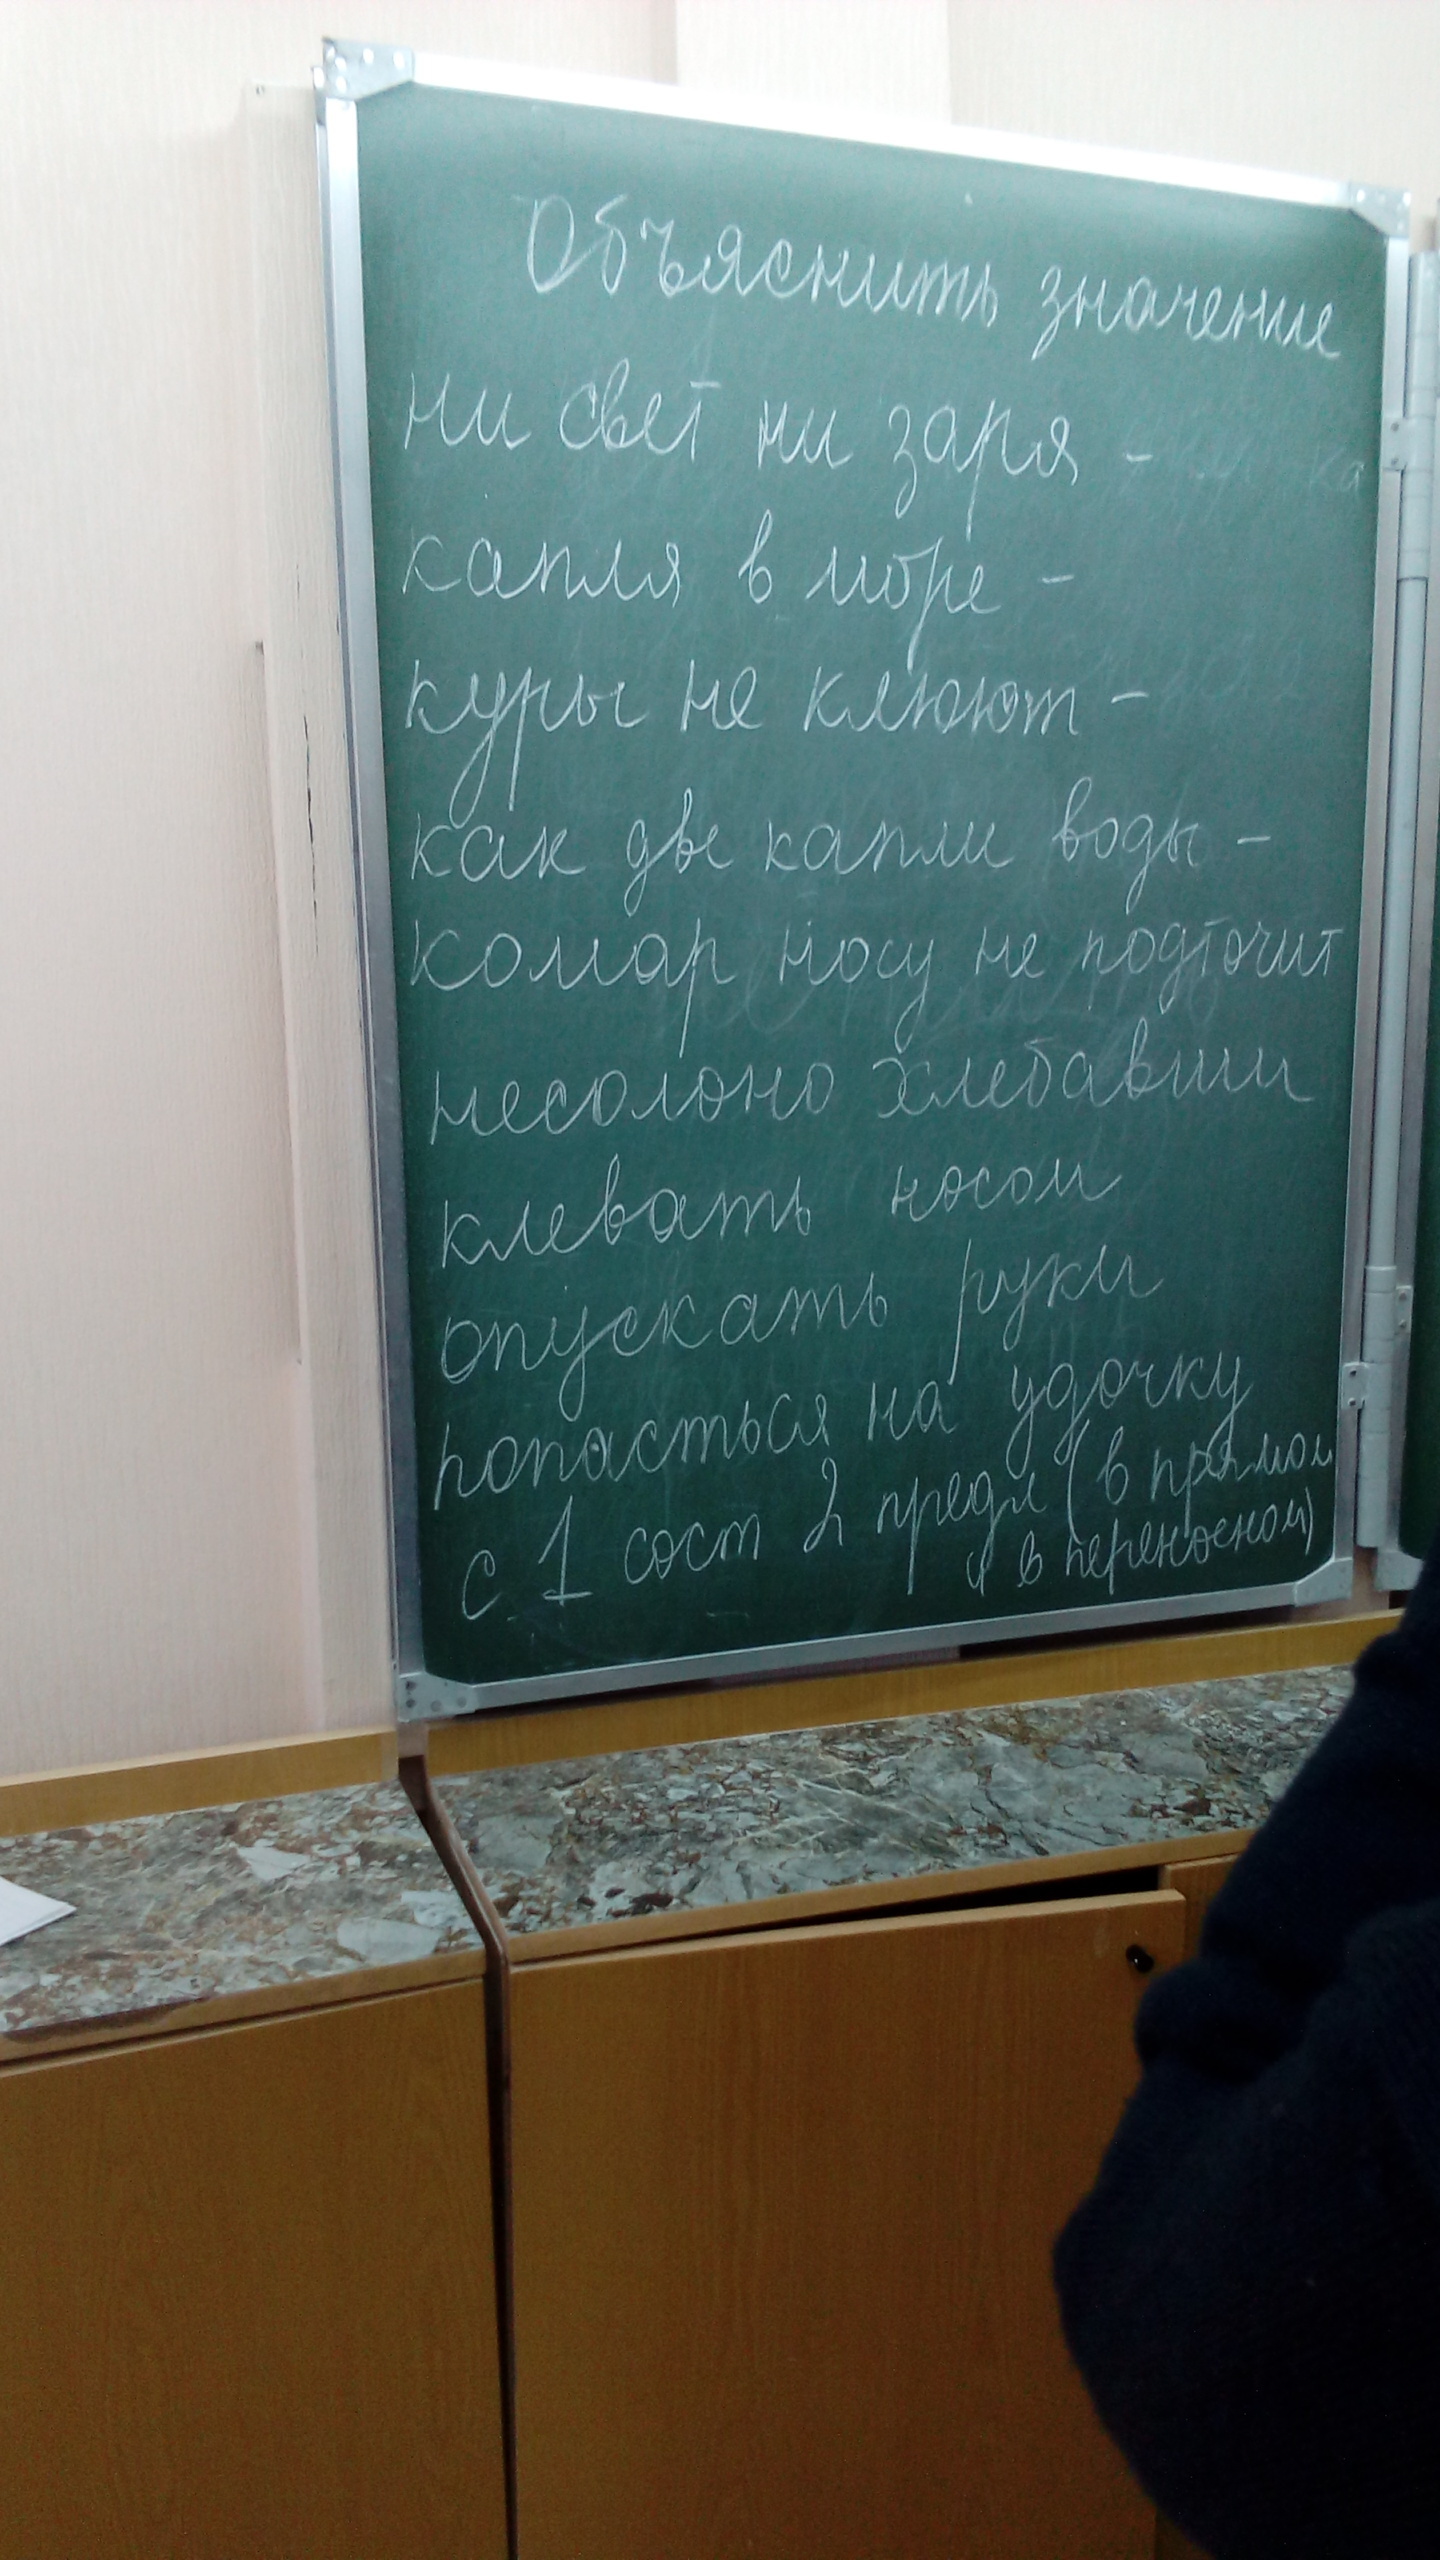 Объяснить значение
ни свет ни заря -
капля в море -
куры не клюют -
как две капли воды -
комар носу не подточит
несолоно хлебавши
клевать носом
опускать руки
попасться на удочку
с 1 сост 2 предл (в прямом
и в переносном)